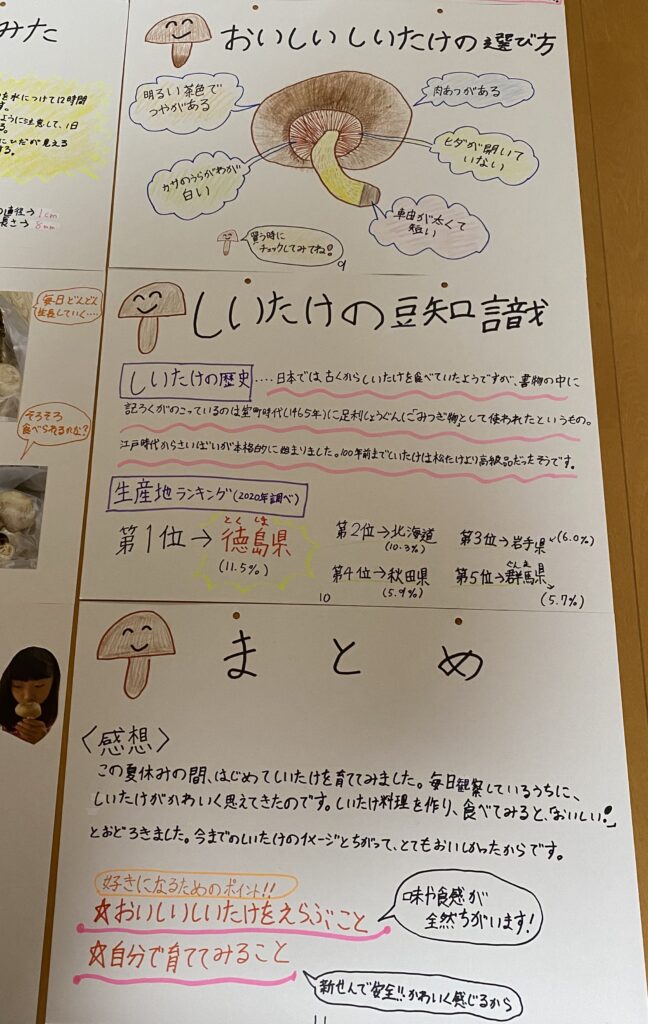 みた
を水につけて12時間
す。
ように注意して、1日
る。
にひだが見える
する。
の直径→1cm
長さ→8mm
毎日どんどん
生長していく…
そろそろ
食べられるかな?
おいしいしいたけの選び方
明るい茶色で
つやがある
肉あつがある
ヒダが開いて
いない
カサのうらがわが
白い
軸が太くて
短い
買う時に
チェックしてみてね!
9
しいたけの豆知識
しいたけの歴史‥‥日本では、古くからしいたけを食べていたようですが、書物の中に
記ろくがのこっているのは室町時代(1465年)に足利しょうぐんに「みつぎ物」として使われたというもの。
江戸時代からさいばいが本格的に始まりました。100年前までしいたけは松たけより高級品だったそうです。
生産地ランキング(2020年調べ)
第1位→徳島県
とくしま
(11.5%)
第2位→北海道
(10.3%)
第3位→岩手県
(6.0%)
第4位→秋田県
(5.9%)
第5位→群馬県
ぐんま
(5.7%)
10
まとめ
〈感想〉
この夏休みの間、はじめてしいたけを育ててみました。毎日観察しているうちに、
しいたけがかわいく思えてきたのです。しいたけ料理を作り、食べてみると、「おいしい!」
とおどろきました。今までのしいたけのイメージとちがって、とてもおいしかったからです。
好きになるためのポイント!!
☆おいしいしいたけをえらぶこと
味や食感が
全然ちがいます!
☆自分で育ててみること
新せんで安全!!かわいく感じるから
11